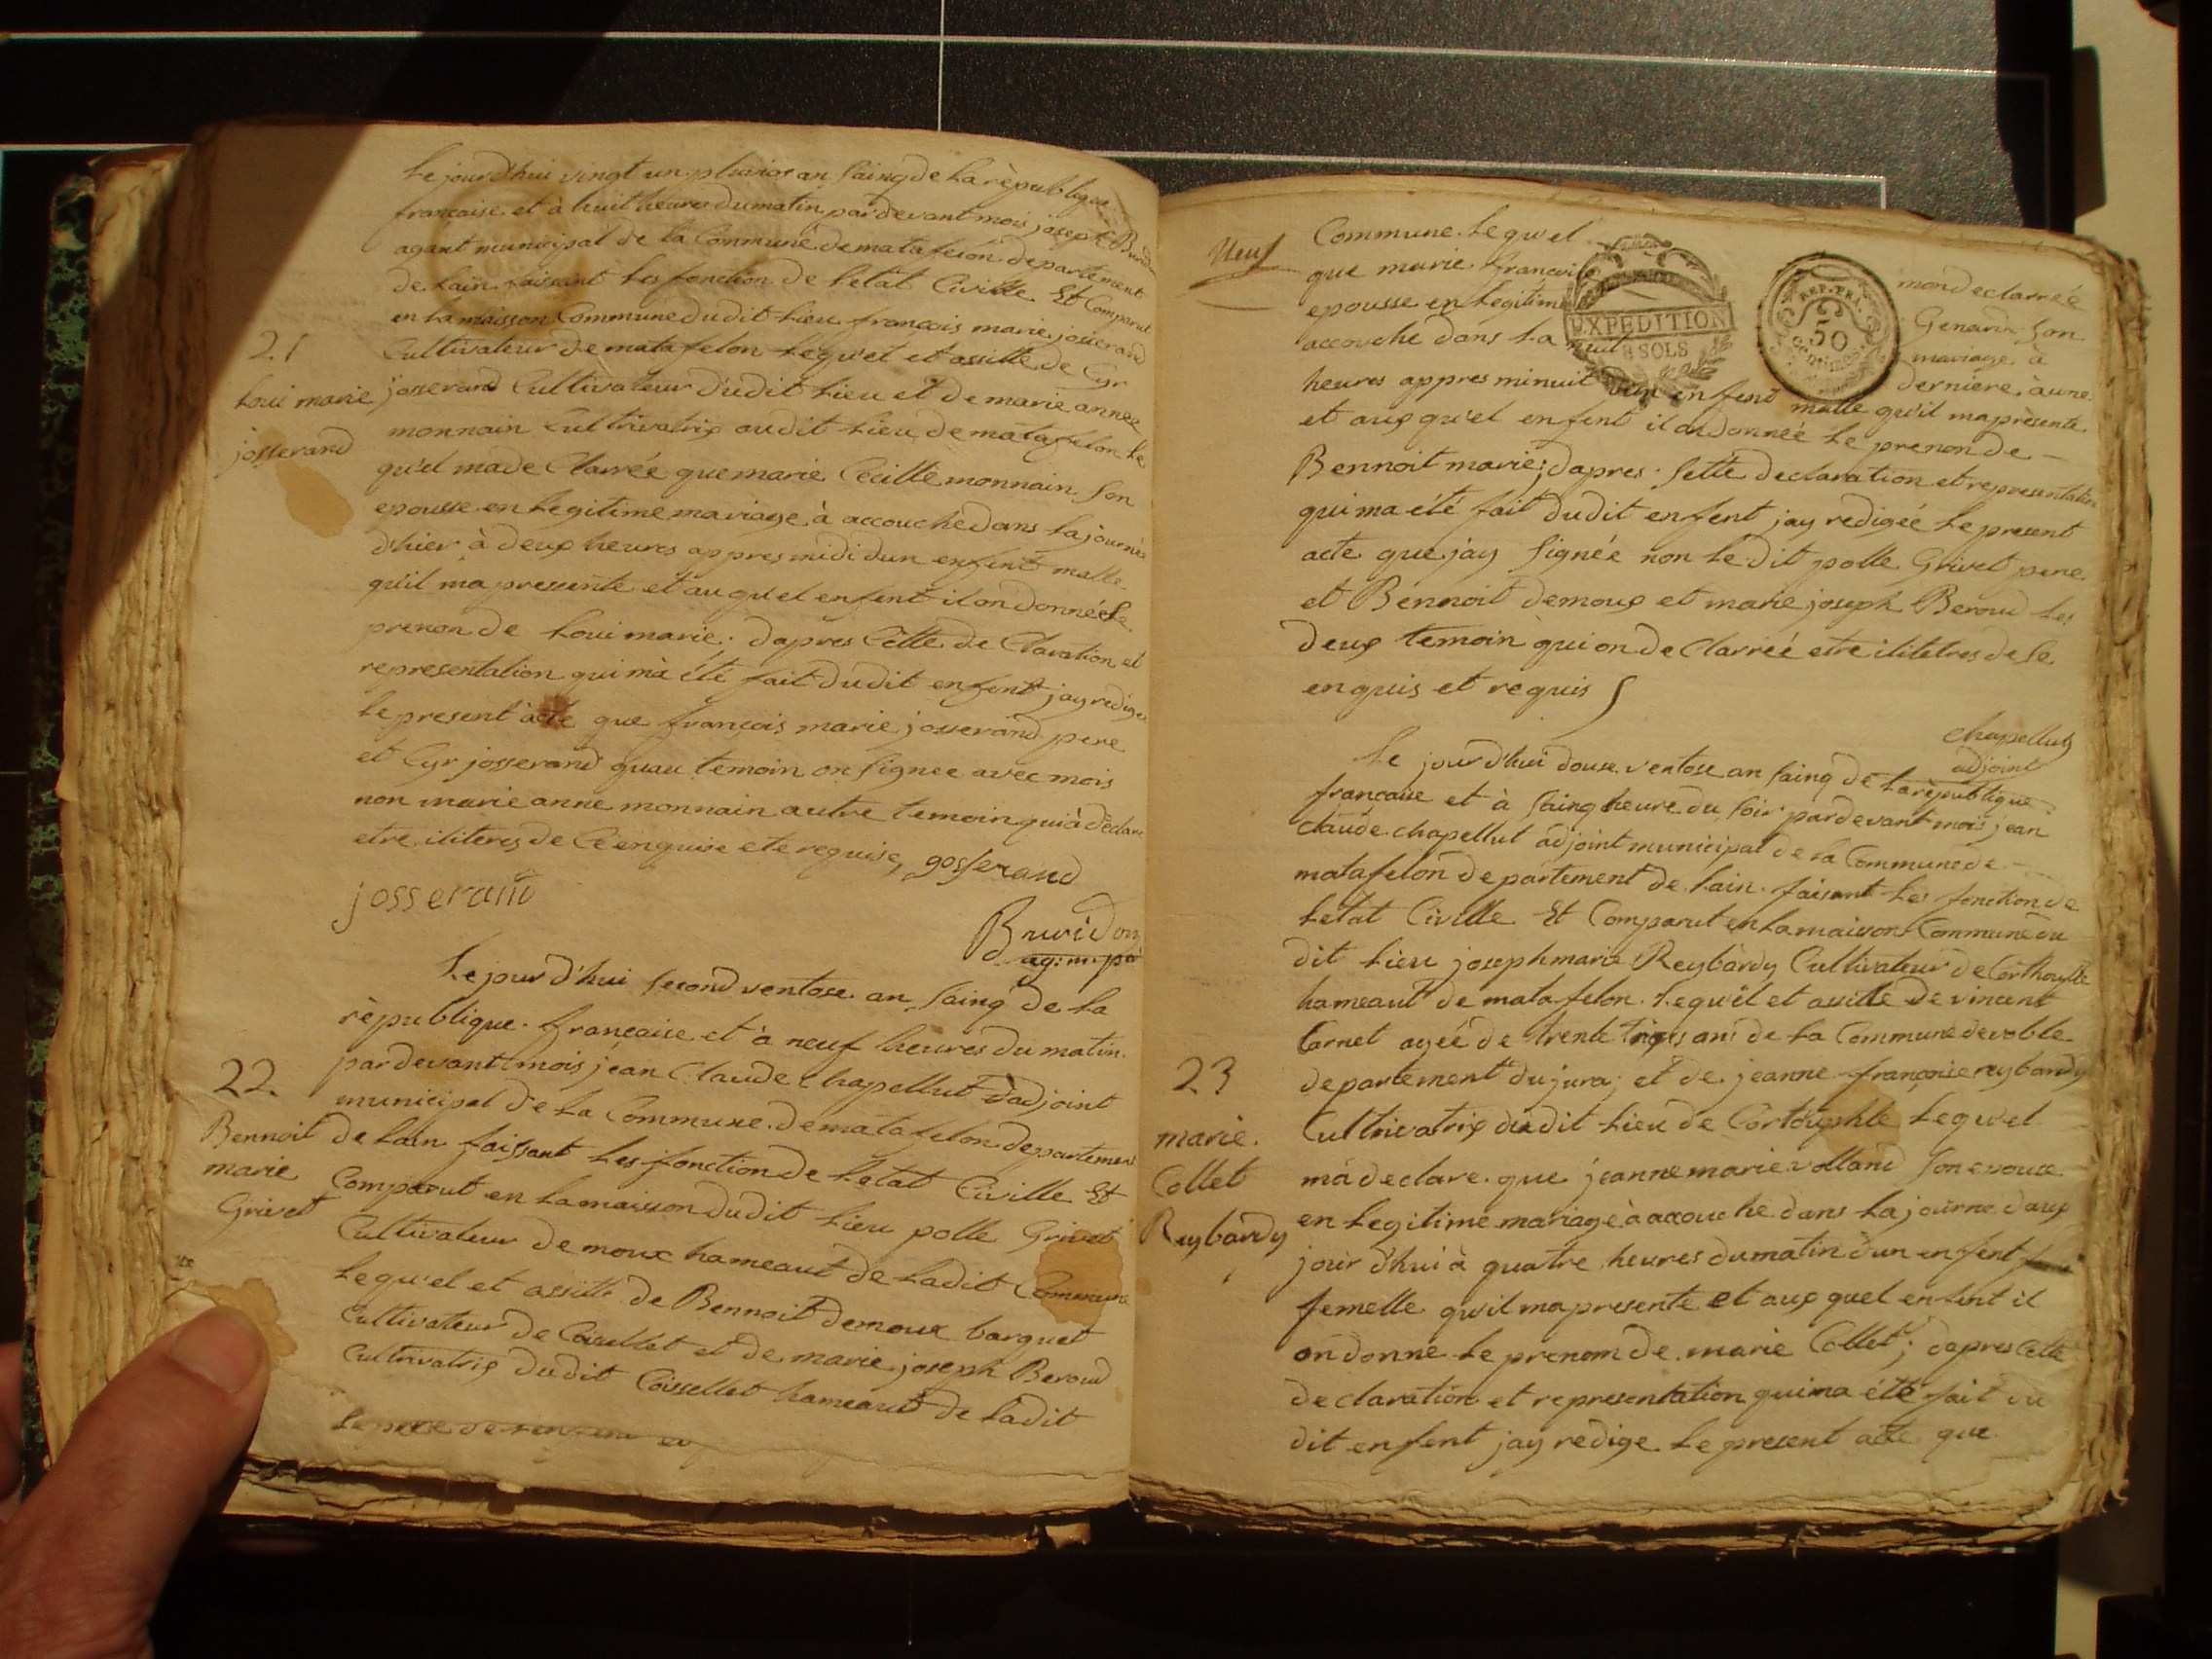 Le jourd'hui vingt un pluvios an Sainq de La rèpublique
francaise et à huit heures du matin pardevant mois joseph Bruvidon
agant municipal de la Commune de matafelon departement
de Lain faissant Les fonction de Letat Civille Et Comparut
en La maisson Commune dudit Lieu francois marie josserand
21
Cultivateur de matafelon Lequ'el et assille de Cyr
Loui marie
josserand Cultivateur dudit Lieu et de marie annee
josserand
monnain Cultrivatrix audit Lieu de matafelon Le
qu'el ma de Clarrée que marie Cecille monnain Son
epousse en Legitime mariage à accouché dans La journée
d'hier à deux heures appres midi dun enfent malle
qu'il ma pressente et au qu'el enfent il on donnée Le
prenon de Loui marie. dapres Cette de Claration et
representation qui mà été fait dudit enfent jay rediges
Le present àcte que francois marie josserand pere
et Cyr josserand quau temoin on Signee avec mois
non marie anne monnain autre temoin qui à déclare
etre iliteres de Ce enquise ete requise, gosserand
josserand
Bruvidon
ag: m: pal
Le jour d'hui Second ventose an Sainq de La
rèpublique francaise et à neuf heures du matin
pardevant mois jean Claude Chapellut adjoint
22.
municipal de La Commune de matafelon departement
Bennoit
de Lain faissant Les fonction de Letat Civille Et
marie
Comparut en La maisson dudit Lieu polle Grivet
Grivet
Cultivateur de moux hameaut de Ladit Commune
Lequ'el et assille de Bennoit demoux barquet
Cultivateur de Coisellet et de marie joseph Beroud
Cultrivatrix dudit Coissellet hameaut de Ladit
Neuf
Commune Lequ'el mon declarrée
que marie francoise Genard Son
epousse en Legitime mariage à
accouche dans La nuit derniere à une
heures appres minuit dun enfent malle qu'il ma presente
et aux qu'el enfent il on donnée Le prenon de
Bennoit marie; dapres Sette declaration et representation
qui ma été fait dudit enfent jay redigée Le present
acte que jay Signée non Le dit polle Grivet pere
et Bennoit demoux et marie joseph Beroud Les
deux temoin qui on de Clarrée etre ilitetres de Se
enquis et requis
chapellut
adjoint
Le jourd'hui douse ventose an Sainq de La rèpublique
francaise et à Sainq heure du Soir pardevant mois jean
Claude chapellut adjoint municipal de La Commune de
matafelon departement de Lain faisant Les fonction de
Letat Civille Et Comparut en La maison Commune du
dit Lieu joseph marie Reybardy Cultivateur de Corthouphle
hameaut de matafelon Lequ'el et assille de vincent
Carnet ageé de trente trois ans de La Commune de voble
23
departement du jura; et de jeanne françoise reybardy
marie
Cultrivatrix dudit Lieu de Cortouphle Lequ'el
Collet
mà declare que jeanne marie volland Son epouse
Reybardy
en Legitime mariage à accouche dans La journe d'aux
jour d'hui à quatre heures du matin dun enfent
femelle qu'il ma presente et aux quel enfent il
on donne Le prenom de marie Collet; dapres Cette
declaration et representation qui ma été fait du
dit enfent jay redige Le present acte que
EXPEDITION
8 SOLS
REP. FRA.
50
centimes